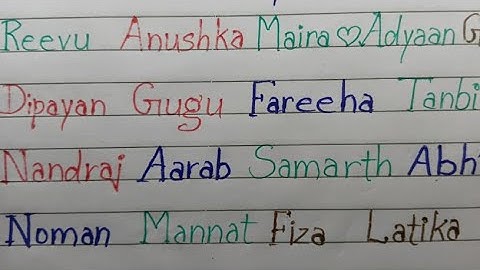 Reevu Anushka Maira♡Adyaan G
Dipayan Gugu Fareeha Tanbi
Nandraj Aarab Samarth Abh
Noman Mannat Fiza Latika